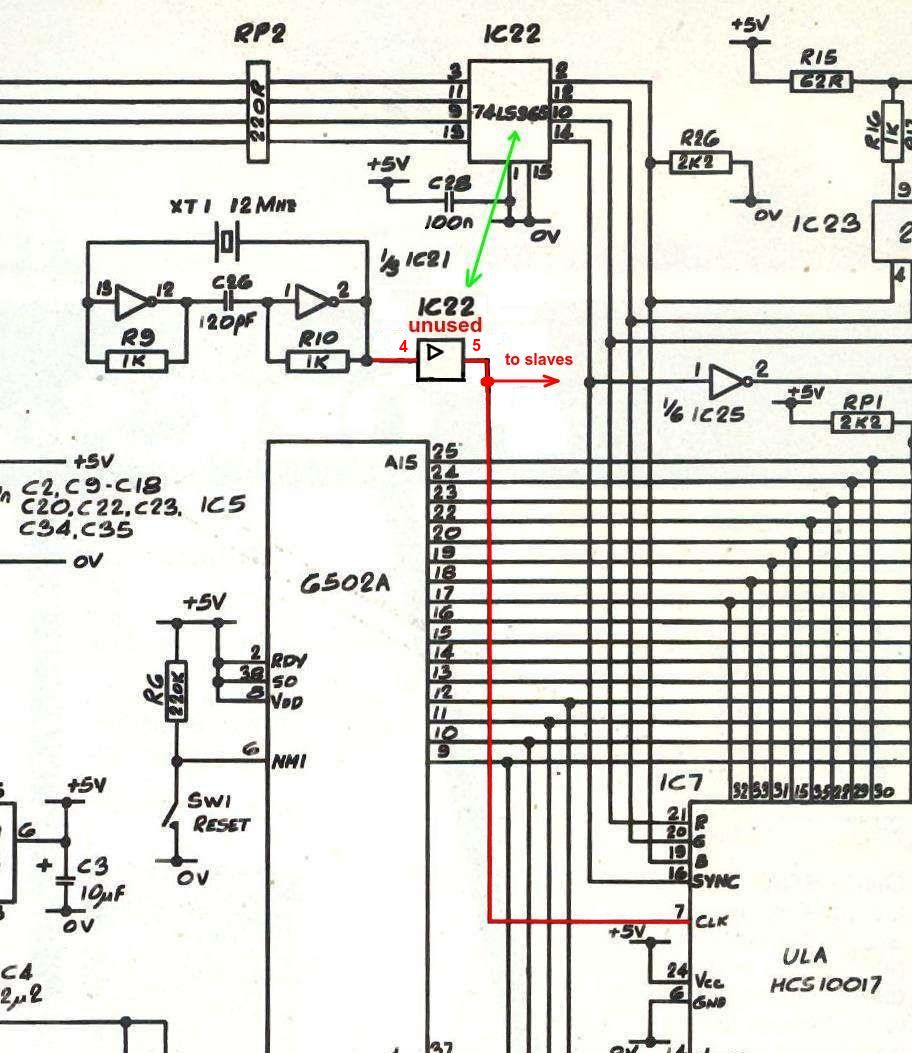 RP2
220R
IC22
3
11
9
13
74LS365
2
12
10
14
1
15
+5V
C28
100n
0V
+5V
R15
62R
R16
1K
R26
2K2
0V
IC23
9
2
4
XT1 12MHz
1/3 IC21
13
12
C26
120pF
1
2
R9
1K
R10
1K
IC22
unused
4
5
to slaves
1
2
1/6 IC25
+5V
RP1
2K2
+5V
C2, C9-C18
C20, C22, C23,
C34, C35
0V
IC5
6502A
A15
25
24
23
22
20
19
18
17
16
15
14
13
12
11
10
9
+5V
R6
220K
2 RDY
38 SO
8 VDD
6 NMI
SW1
RESET
0V
6
+5V
+ C3
10µF
0V
C4
2µ2
37
IC7
32 33 31 15 35 28 29 30
21 R
20 G
19 B
16 SYNC
7 CLK
+5V
24 Vcc
6 GND
0V
14
ULA
HCS10017